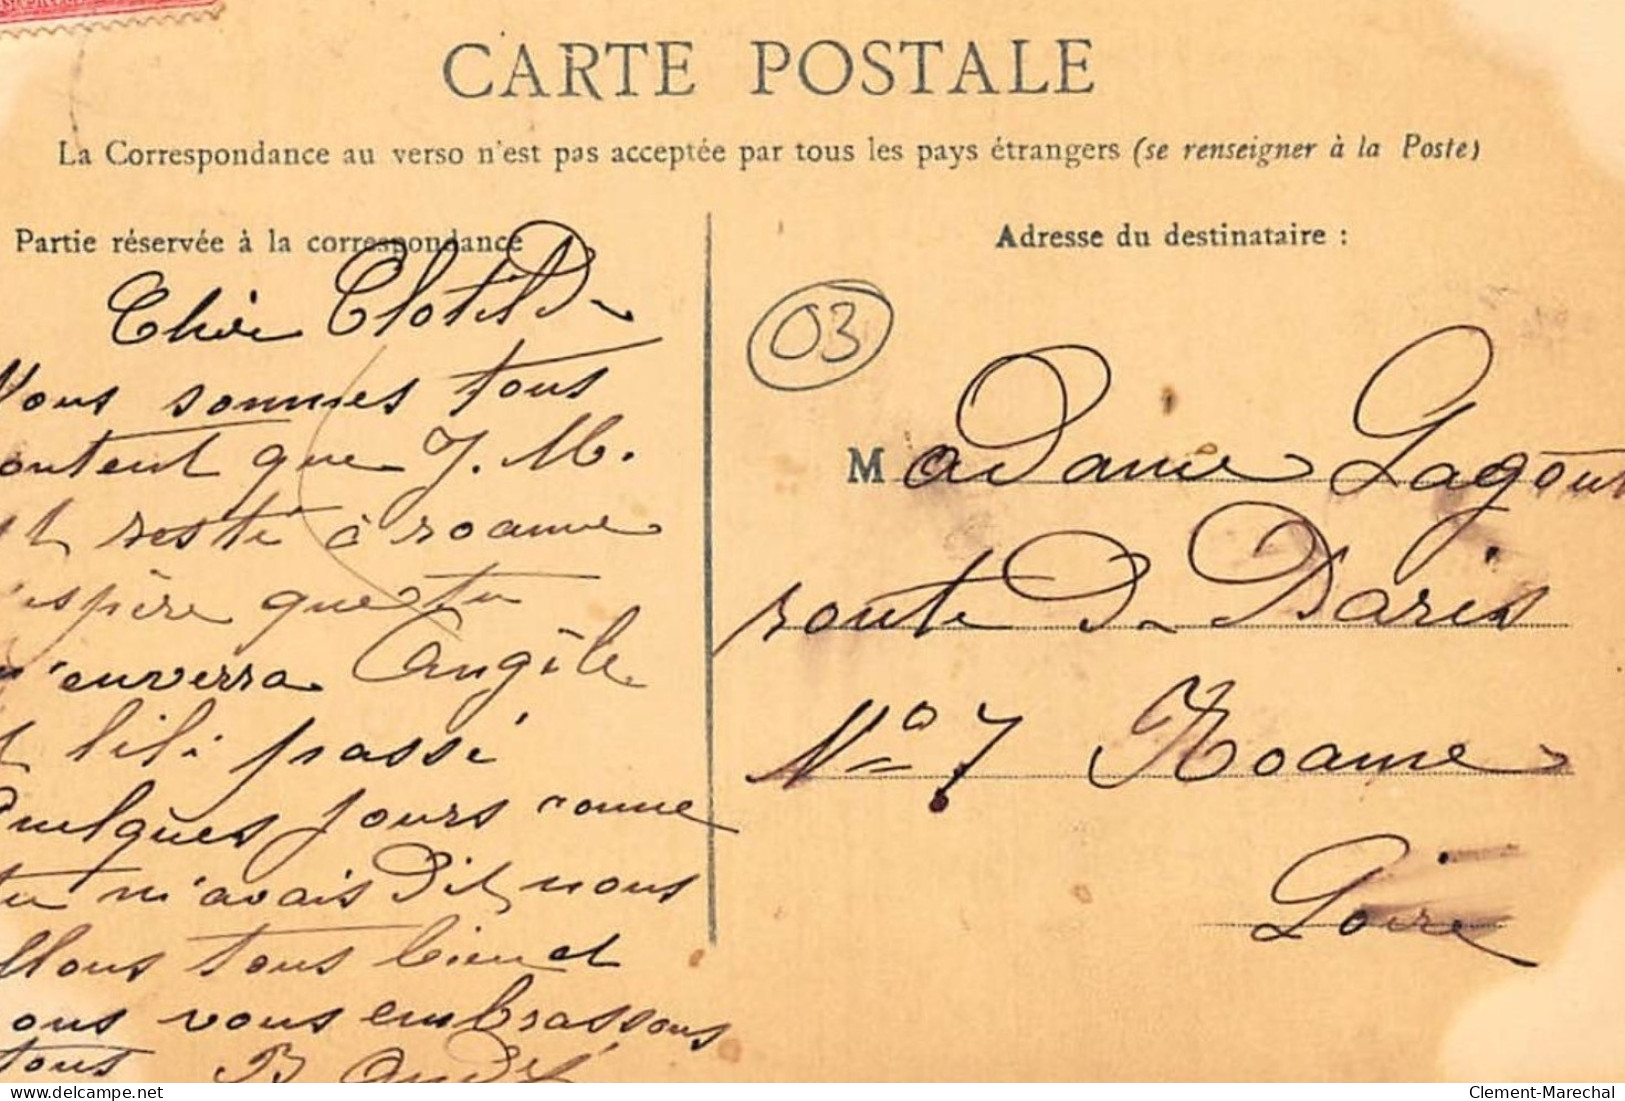 CARTE POSTALE
La Correspondance au verso n'est pas acceptée par tous les pays étrangers (se renseigner à la Poste)
Partie réservée à la correspondance
Chèr Clotilde
Nous sommes tous
content que J. M.
est resté à roanne
j'espère que tu
m'enverra Angèle
et lili passé
quelques jours comme
tu m'avais dit nous
allons tous bien et
nous vous embrassons
tous B André
Adresse du destinataire :
03
Madame Lagout
route de Paris
No 7 Roanne
Loire
Clement-Marechal
delcampe.net